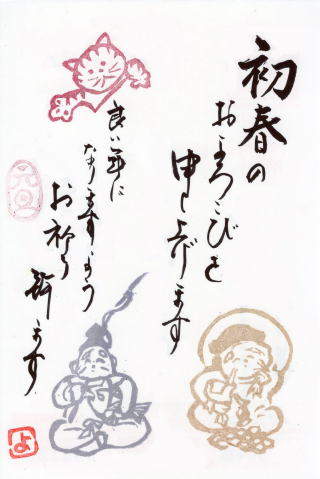 初春の
およろこびを
申し上げます
良い年に
なりますよう
お祈り
致します
元旦
よ